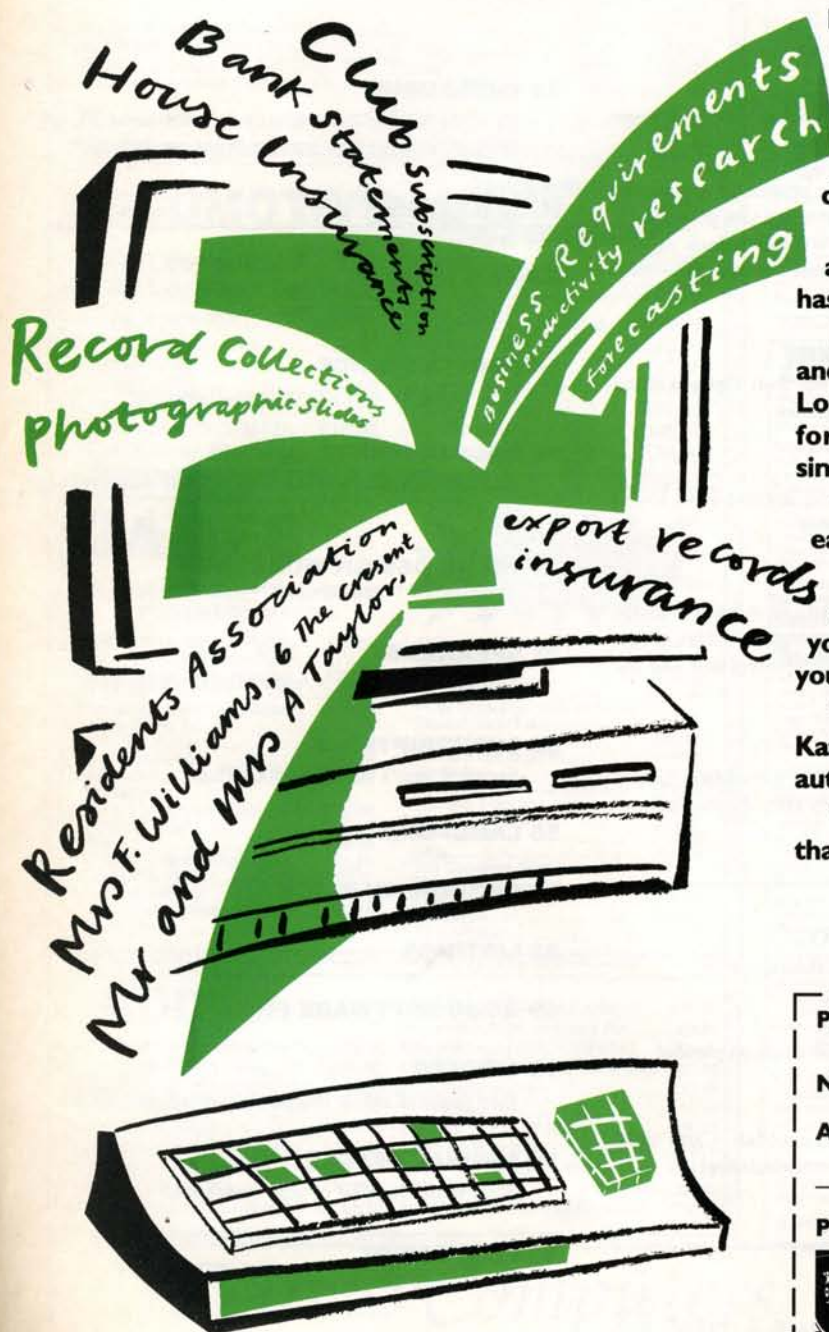 Club Subscription
Bank Statements
House Insurance
Business Requirements
Productivity research
forecasting
Record Collections
photographic slides
export records
insurance
Residents Association
Mrs F. Williams, 6 The Cresent
Mr and Mrs A Taylor,
has
and
Lo
for
sin
ea
yo
you
Ka
aut
tha
P
N
A
P